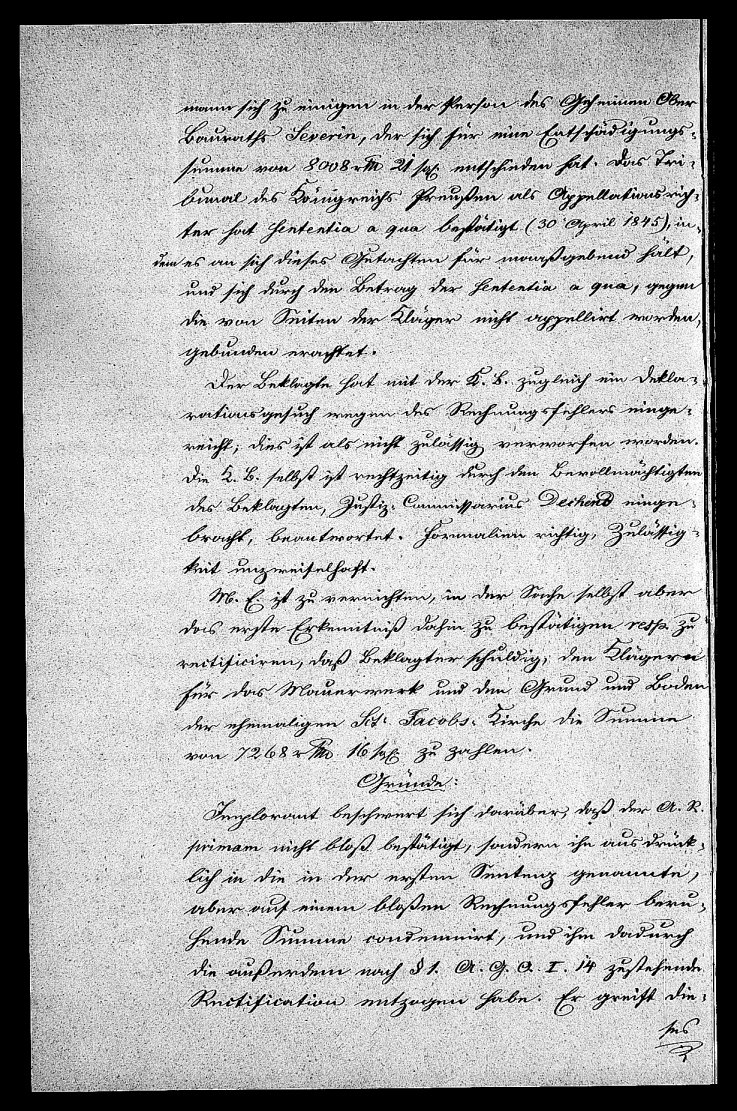 mann sich zu einigen in der Person des Geheimen Ober
Bauraths Severin, der sich für eine Entschädigungs-
summe von 8008 rth 21 sg. entschieden hat. Das Tri-
bunal des Königreichs Preußen als Appellationsrich-
ter hat sententia a qua bestätigt (30 April 1845), in-
dem es an sich dieses Gutachten für maaßgebend hält,
und sich durch den Betrag der sententia a qua, gegen
die von Seiten der Kläger nicht appellirt worden,
gebunden erachtet.
Der Beklagte hat mit der K. B. zugleich ein Dekla-
rationsgesuch wegen des Rechnungsfehlers einge-
reicht; dies ist als nicht zulässig verworfen worden.
Die K. B. selbst ist rechtzeitig durch den Bevollmächtigten
des Beklagten, Justiz-Commissarius Dechend einge-
bracht, beantwortet. Formalien richtig, Zulässig-
keit unzweifelhaft.
M. E. ist zu vernichten, in der Sache selbst aber
das erste Erkenntniß dahin zu bestätigen resp. zu
rectificiren, daß Beklagter schuldig, den Klägern
für das Mauerwerk und den Grund und Boden
der ehemaligen Sct. Jacobs-Kirche die Summe
von 7268 rth 16 sg. zu zahlen.
Gründe:
Implorant beschwert sich darüber, daß der A. R.
primam nicht bloß bestätigt, sondern ihn ausdrück-
lich in die in der ersten Sentenz genannte,
aber auf einem bloßen Rechnungsfehler beru-
hende Summe condemnirt, und ihm dadurch
die außerdem nach § 1. A. G. O. I. 14 zustehende
Rectification entzogen habe. Er greift die-
ses